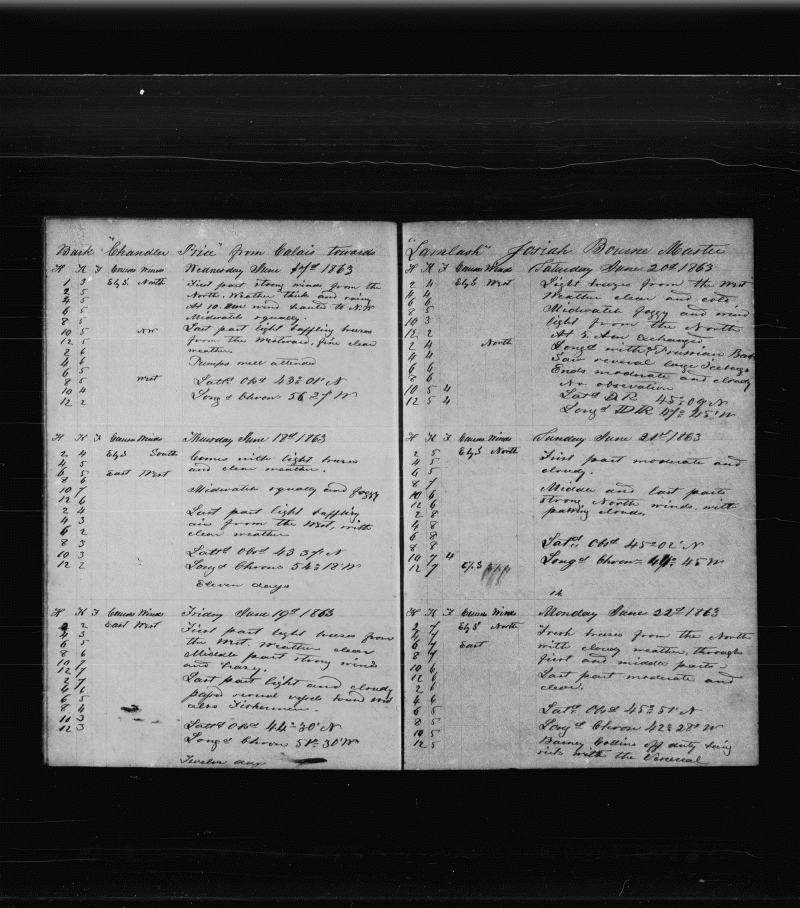 Bark "Chandler Price" from Calais towards
H K F Courses Winds Wednesday June 17th 1863
1 3 E by S North First part strong winds from the
2 5 North. Weather thick and rainy
4 5 At 10. AM wind hauled to N.W
6 5 Midwatch squally.
8 5
10 5 NW Last part light baffling breezes
12 5 from the Westward, fine clear
2 6 weather.
4 6 Pumps well attended
6 5
8 5 West Latd Obsd 43° 01' N
10 4 Longd Chron 56 27 W
12 2
H K F Courses Winds Thursday June 18th 1863
2 4 E by S South Comes with light breezes
4 5 and clear weather.
6 5 East West
8 6
10 7 Midwatch squally and foggy
12 6
2 4 Last part light baffling
4 3 airs from the West, with
6 2 clear weather
8 3
10 3 Latd Obsd 43 37 N
12 2 Longd Chron 54° 18' W
Eleven days
H K F Courses Winds Friday June 19th 1863
2 2 East West First part light breezes from
4 3 the West. Weather clear
6 5 Middle part strong winds
8 6 and hazy.
10 7
12 7 Last part light and cloudy
2 7 passed several vessels bound West
4 6 also Fishermen.
6 5
8 4
11 3 Latd Obsd 44° 30' N
12 3 Longd Chron 51° 30' W
Twelve days
"Lamlash" Josiah Bourne Master
H K F Courses Winds Saturday June 20th 1863
2 4 E by S West Light breezes from the West
4 4 Weather clear and cold
6 6 Midwatch foggy and wind
8 5 light from the North
10 3 At 5 Am Exchanged
12 2 Longd with Prussian Bark
2 4 North Saw several large Icebergs
4 4 Ends moderate and cloudy
6 6 No observation
8 6
10 5 4 Latd D R 45° 09 N
12 5 4 Longd D R 47° 45' W
H K F Courses Winds Sunday June 21st 1863
2 5 E by S North First part moderate and
4 6 cloudy.
6 5
8 7 Middle and last parts
10 6 strong North winds with
12 6 passing clouds.
2 8
4 8
6 8
8 8 Latd Obsd 45° 02' N
10 7 4 Longd Chron 44° 45 W
12 7
H K F Courses Winds Monday June 22d 1863
2 7 E by S North Fresh breezes from the North
4 7 with cloudy weather, through
6 7 East first and middle parts.
8 7
10 6 Last part moderate and
12 6 clear.
2 6
4 6
6 5 Latd Obsd 45° 51' N
8 5 Longd Chron 42° 28' W
10 5 Barney Collins off duty being
12 5 sick with the Venereal